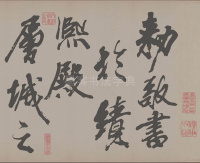 勅敬書
於緝
熙殿
層城之